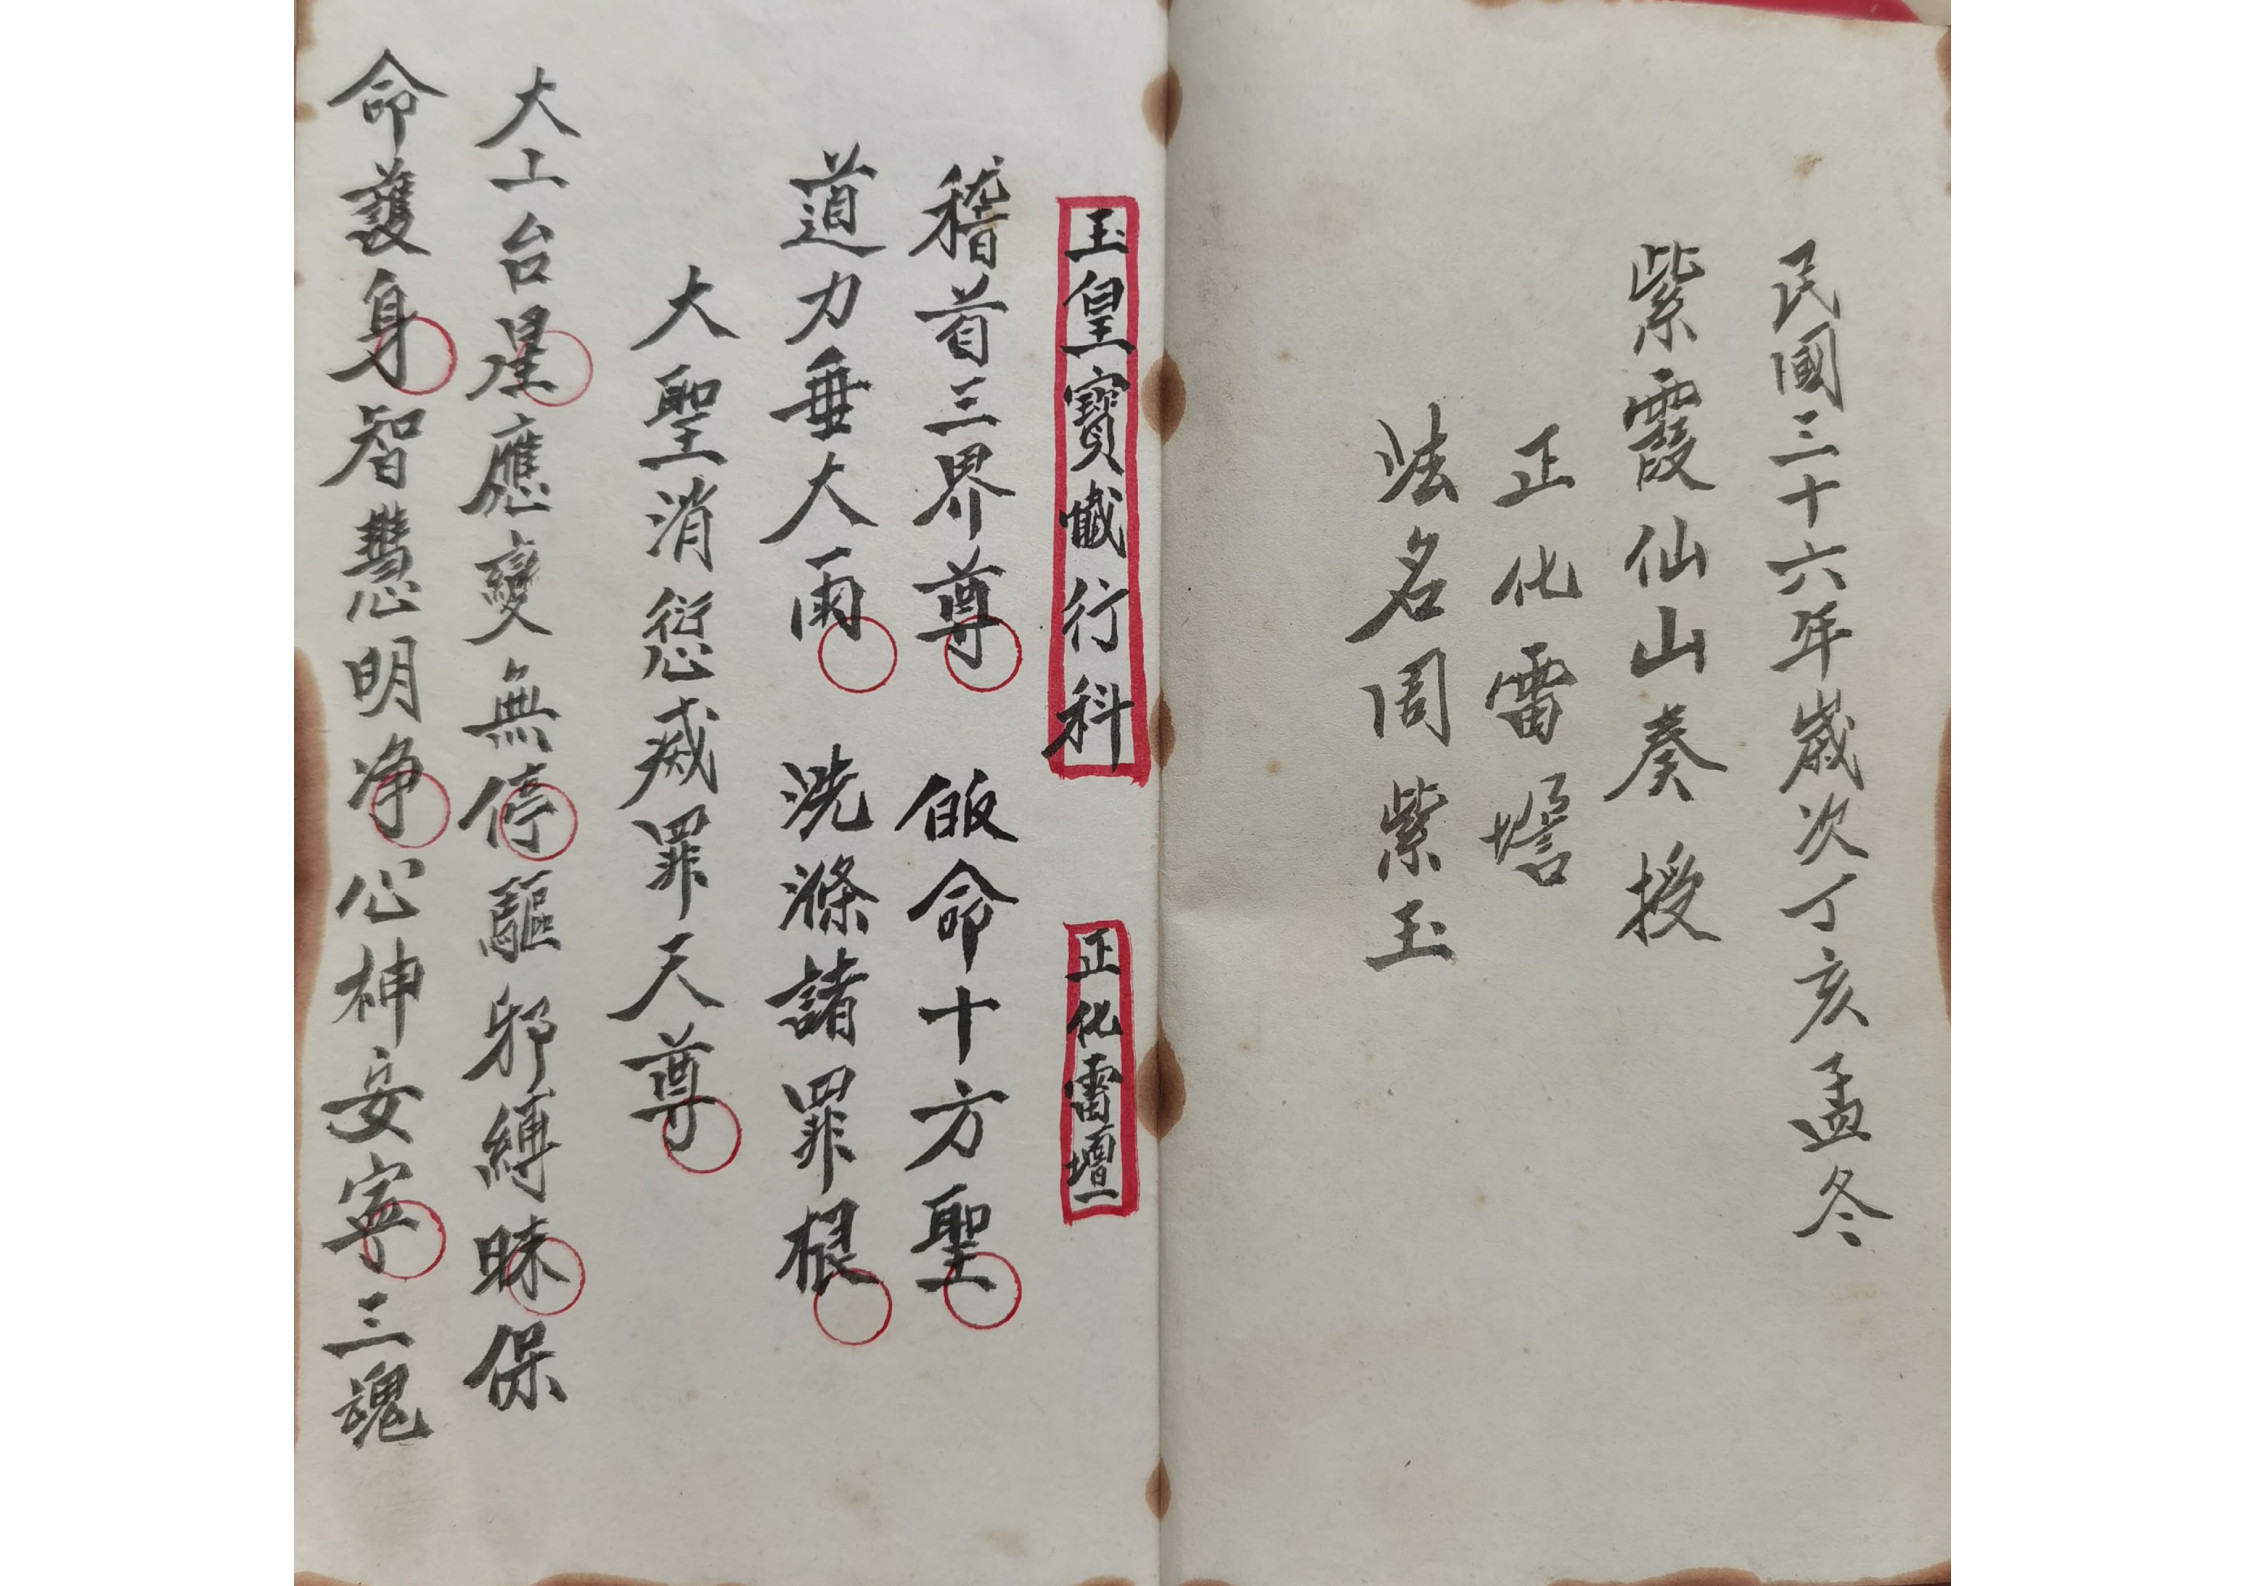 民國三十六年歲次丁亥孟冬
紫霞仙山奏授
正化雷壇
法名周紫玉
玉皇寶懺行科 正化雷壇
稽首三界尊 皈命十方聖
道力垂大雨 洗滌諸罪根
大聖消愆滅罪天尊
大上台星應變無停驅邪縛昧保
命護身智慧明净心神安寧三魂